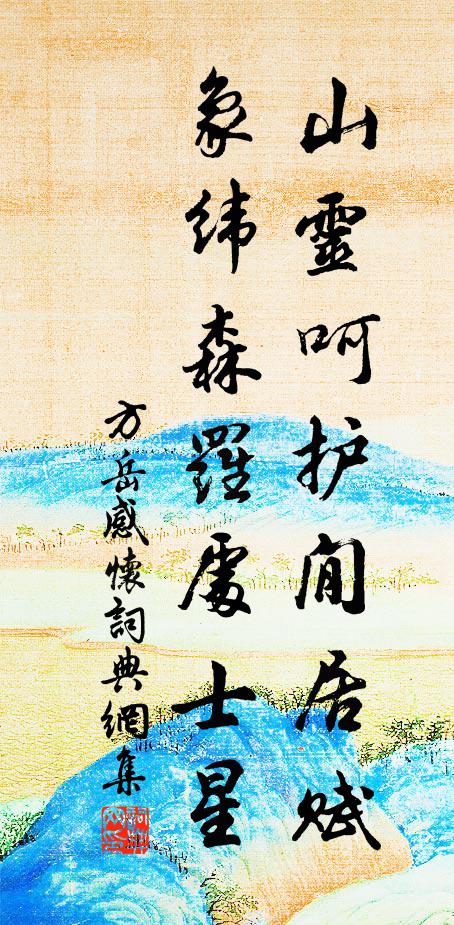 山靈呵护閒居賦
象緯森羅處士星
方岳感懷詞典網集